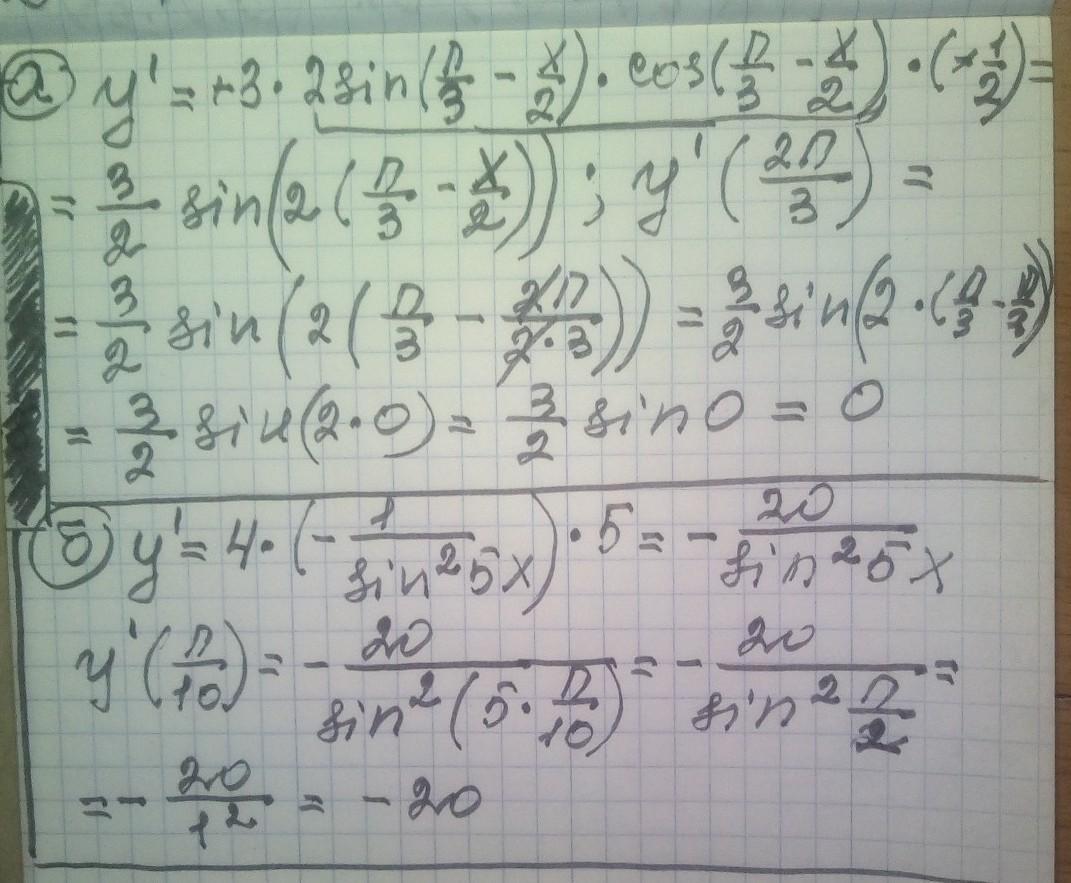 а) y' = +3 · 2sin(π/3 - x/2) · cos(π/3 - x/2) · (+1/2) =
= 3/2 sin(2(π/3 - x/2)); y'(2π/3) =
= 3/2 sin(2(π/3 - 2π/2·3)) = 3/2 sin(2·(π/3 - π/3))
= 3/2 sin(2·0) = 3/2 sin0 = 0
б) y' = 4·(-1/sin²5x)·5 = -20/sin²5x
y'(π/10) = -20/sin²(5·π/10) = -20/sin²π/2 =
= -20/1² = -20